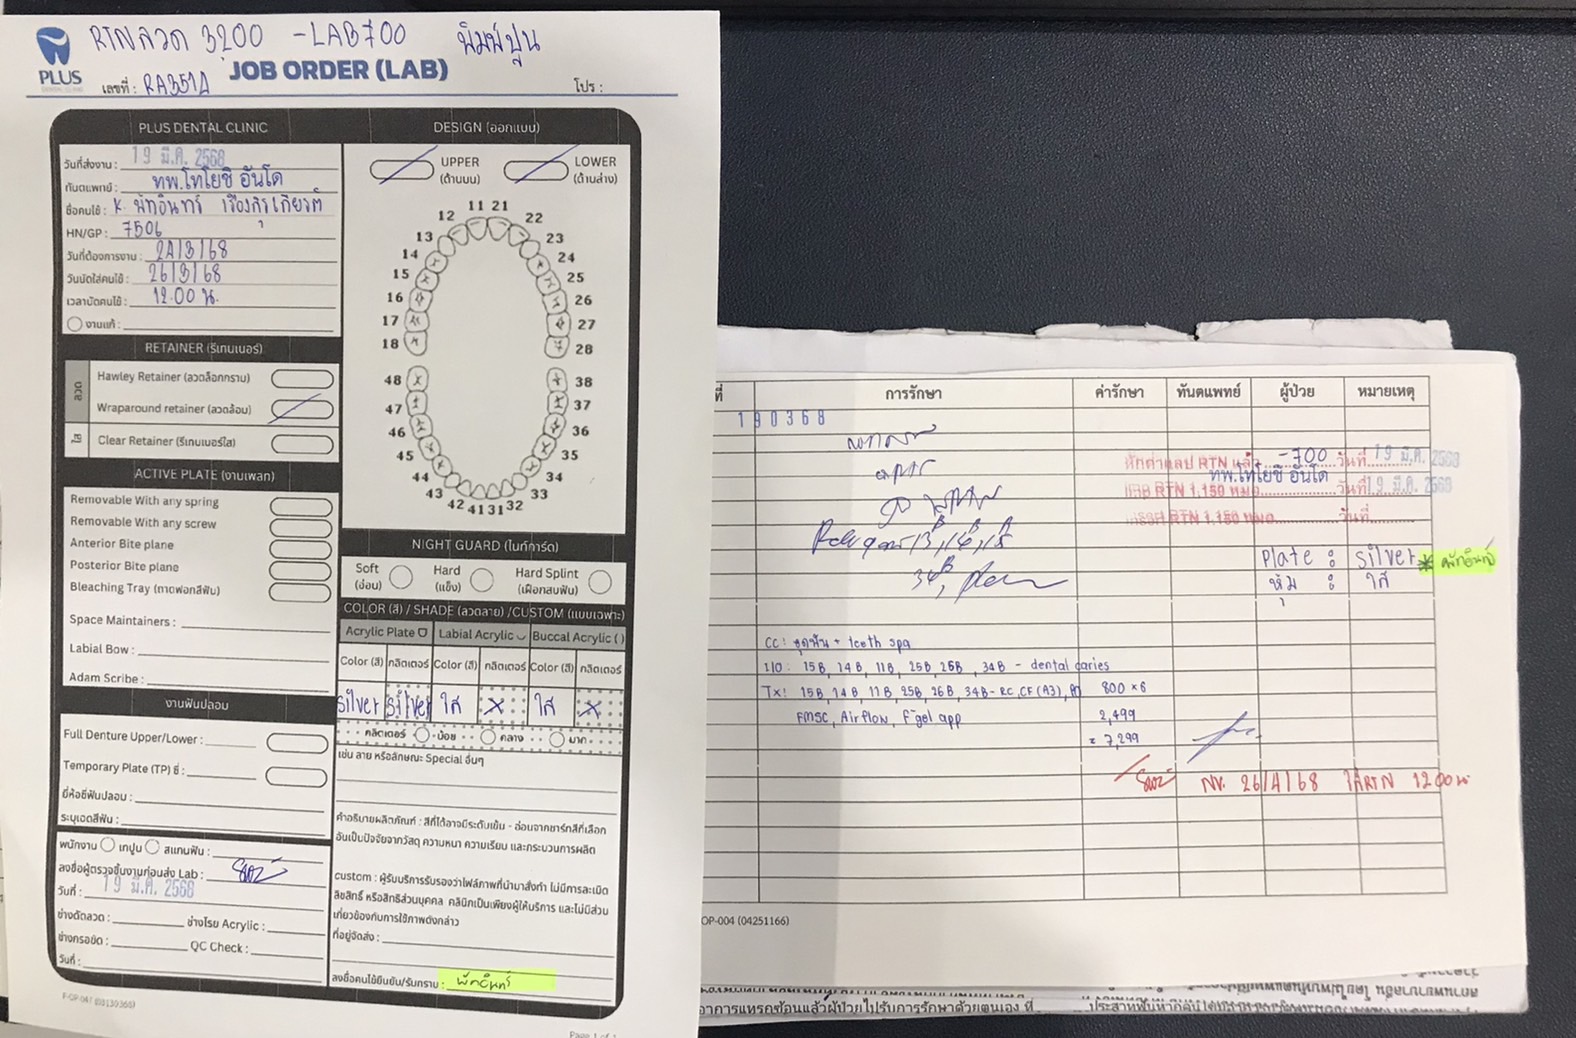 RTNลวด 3200 -LAB700 พิมพ์ปูน
PLUS
DENTAL CLINIC
JOB ORDER (LAB)
เลขที่ :
โปร :
PLUS DENTAL CLINIC
วันที่ส่งงาน : 19 มี.ค. 2568
ทันตแพทย์ : ทพ.โทโยชิ อันโด
ชื่อคนไข้ : K. พัทอินทร์
HN/GP : 7506
วันที่ต้องการงาน : 24/3/68
วันนัดใส่คนไข้ : 26/3/68
เวลานัดคนไข้ : 12.00 น.
งานแก้ :
RETAINER (รีเทนเนอร์)
ลวด
Hawley Retainer (ลวดล็อกกราม)
Wraparound retainer (ลวดล้อม)
ใส
Clear Retainer (รีเทนเนอร์ใส)
ACTIVE PLATE (งานเพลท)
Removable With any spring
Removable With any screw
Anterior Bite plane
Posterior Bite plane
Bleaching Tray (ถาดฟอกสีฟัน)
Space Maintainers :
Labial Bow :
Adam Scribe :
งานฟันปลอม
Full Denture Upper/Lower :
Temporary Plate (TP) ซี่ :
ยี่ห้อซี่ฟันปลอม :
ระบุเฉดสีฟัน :
พนักงาน เทปูน สแกนฟัน :
ลงชื่อผู้ตรวจชิ้นงานก่อนส่ง Lab :
วันที่ : 19 มี.ค. 2568
ช่างดัดลวด : ช่างโรย Acrylic :
ช่างกรอขัด : QC Check :
วันที่ :
DESIGN (ออกแบบ)
UPPER (ด้านบน)
LOWER (ด้านล่าง)
11 21
12 22
13 23
14 24
15 25
16 26
17 27
18 28
48 38
47 37
46 36
45 35
44 34
43 33
42 41 31 32
NIGHT GUARD (ไนท์การ์ด)
Soft (อ่อน)
Hard (แข็ง)
Hard Splint (เฝือกสบฟัน)
COLOR (สี) / SHADE (ลวดลาย) /CUSTOM (แบบเฉพาะ)
Acrylic Plate Labial Acrylic Buccal Acrylic ( )
Color (สี) กลิตเตอร์ Color (สี) กลิตเตอร์ Color (สี) กลิตเตอร์
silver silver ใส x ใส x
กลิตเตอร์ น้อย กลาง มาก
เช่น ลาย หรือลักษณะ Special อื่นๆ
คำอธิบายผลิตภัณฑ์ : สีที่ได้อาจมีระดับเข้ม - อ่อนจากชาร์ทสีที่เลือก
อันเป็นปัจจัยจากวัสดุ ความหนา ความเรียบ และกระบวนการผลิต
custom : ผู้รับบริการรับรองว่าไฟล์ภาพที่นำมาสั่งทำ ไม่มีการละเมิด
ลิขสิทธิ์ หรือสิทธิส่วนบุคคล คลินิกเป็นเพียงผู้ให้บริการ และไม่มีส่วน
เกี่ยวข้องกับการใช้ภาพดังกล่าว
ที่อยู่จัดส่ง :
ลงชื่อคนไข้ยืนยัน/รับทราบ : พัทอินทร์
Page 1 of 1
ที่ การรักษา ค่ารักษา ทันตแพทย์ ผู้ป่วย หมายเหตุ
190368
หักค่าแลป RTN แล้ว -700 วันที่ 19 มี.ค. 2568
ทพ.โทโยชิ อันโด
RTN 1,150 หมอ วันที่ 19 มี.ค. 2568
RTN 1,150 หมอ วันที่
Plate : silver * พัทอินทร์
หุ้ม : ใส
CC : ขูดหิน + teeth spa
I/O : 15B, 14B, 11B, 25B, 26B, 34B - dental caries
Tx : 15B, 14B, 11B, 25B, 26B, 34B - RC, CF (A3), 800 x 6
FMSC, Airflow, F gel app 2,499
= 7,299
NV. 26/4/68 RTN 12.00 น
OP-004 (04251166)
อาการแทรกซ้อนแล้วผู้ป่วยไปรับการรักษาด้วยตนเอง ที่